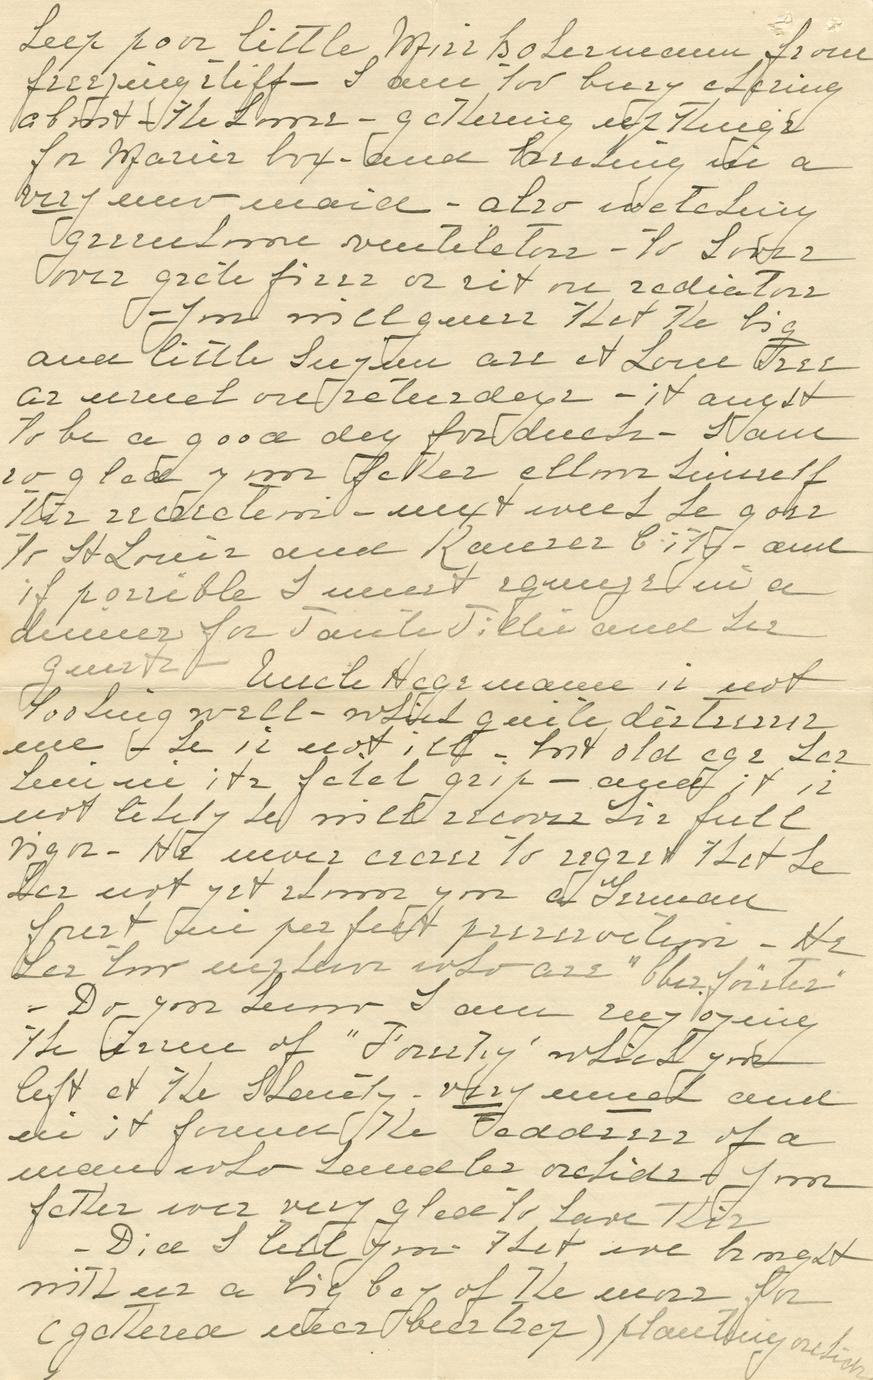 keep poor little Miss Bokermann from
freezing stiff - I am too busy chasing
about - the house - gathering up things
for Maries box - and breaking in a
very new maid - also watching
greenhouse ventilators - to hover
over grate fires or sit on radiators
- You will guess that the big
and little Suzan are at Lone Tree
as usual on Saturdays - it ought
to be a good day for ducks - I am
so glad your father allows himself
this recreation - next week he goes
to St Louis and Kansas City - and
if possible I must squeeze in a
dinner for Tante Tillie and her
guests - Uncle Hagemann is not
looking well - which quite distresses
me - he is not ill - but old age has
him in its fatal grip - and it is
not likely he will recover his full
vigor - He never ceases to regret that he
has not yet shown you a German
forest in perfect preservation - He
has two nephews who are "Oberförster"
- Do you know I am enjoying
the issue of "Forestry" which you
left at the Shanty - very much and
in it found the address of a
man who handles orchids - your
father was very glad to have this
- Did I tell you that we brought
with us a big bag of the moss for
(gathered near Beartrap) planting orchids